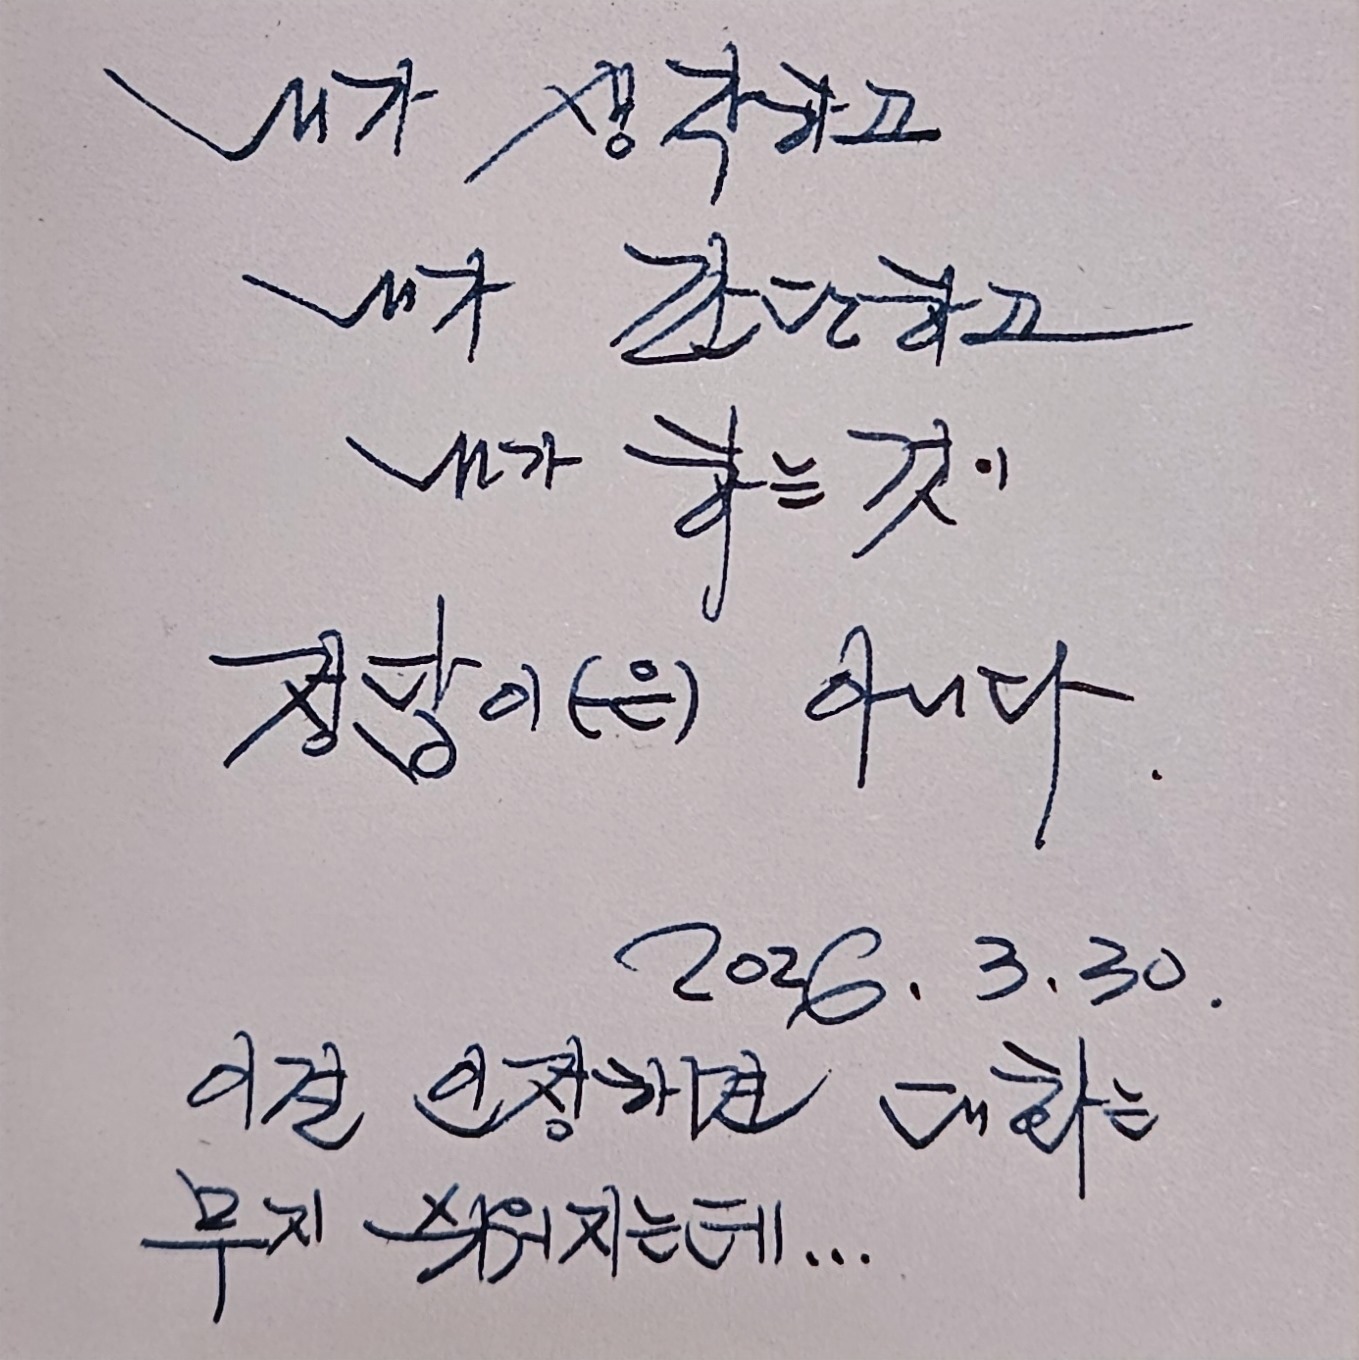 내가 생각하고
내가 판단하고
내가 하는 것이
정답이(은) 아니다.
2026. 3. 30.
이걸 인정하면 대화는
무지 쉬워지는데...